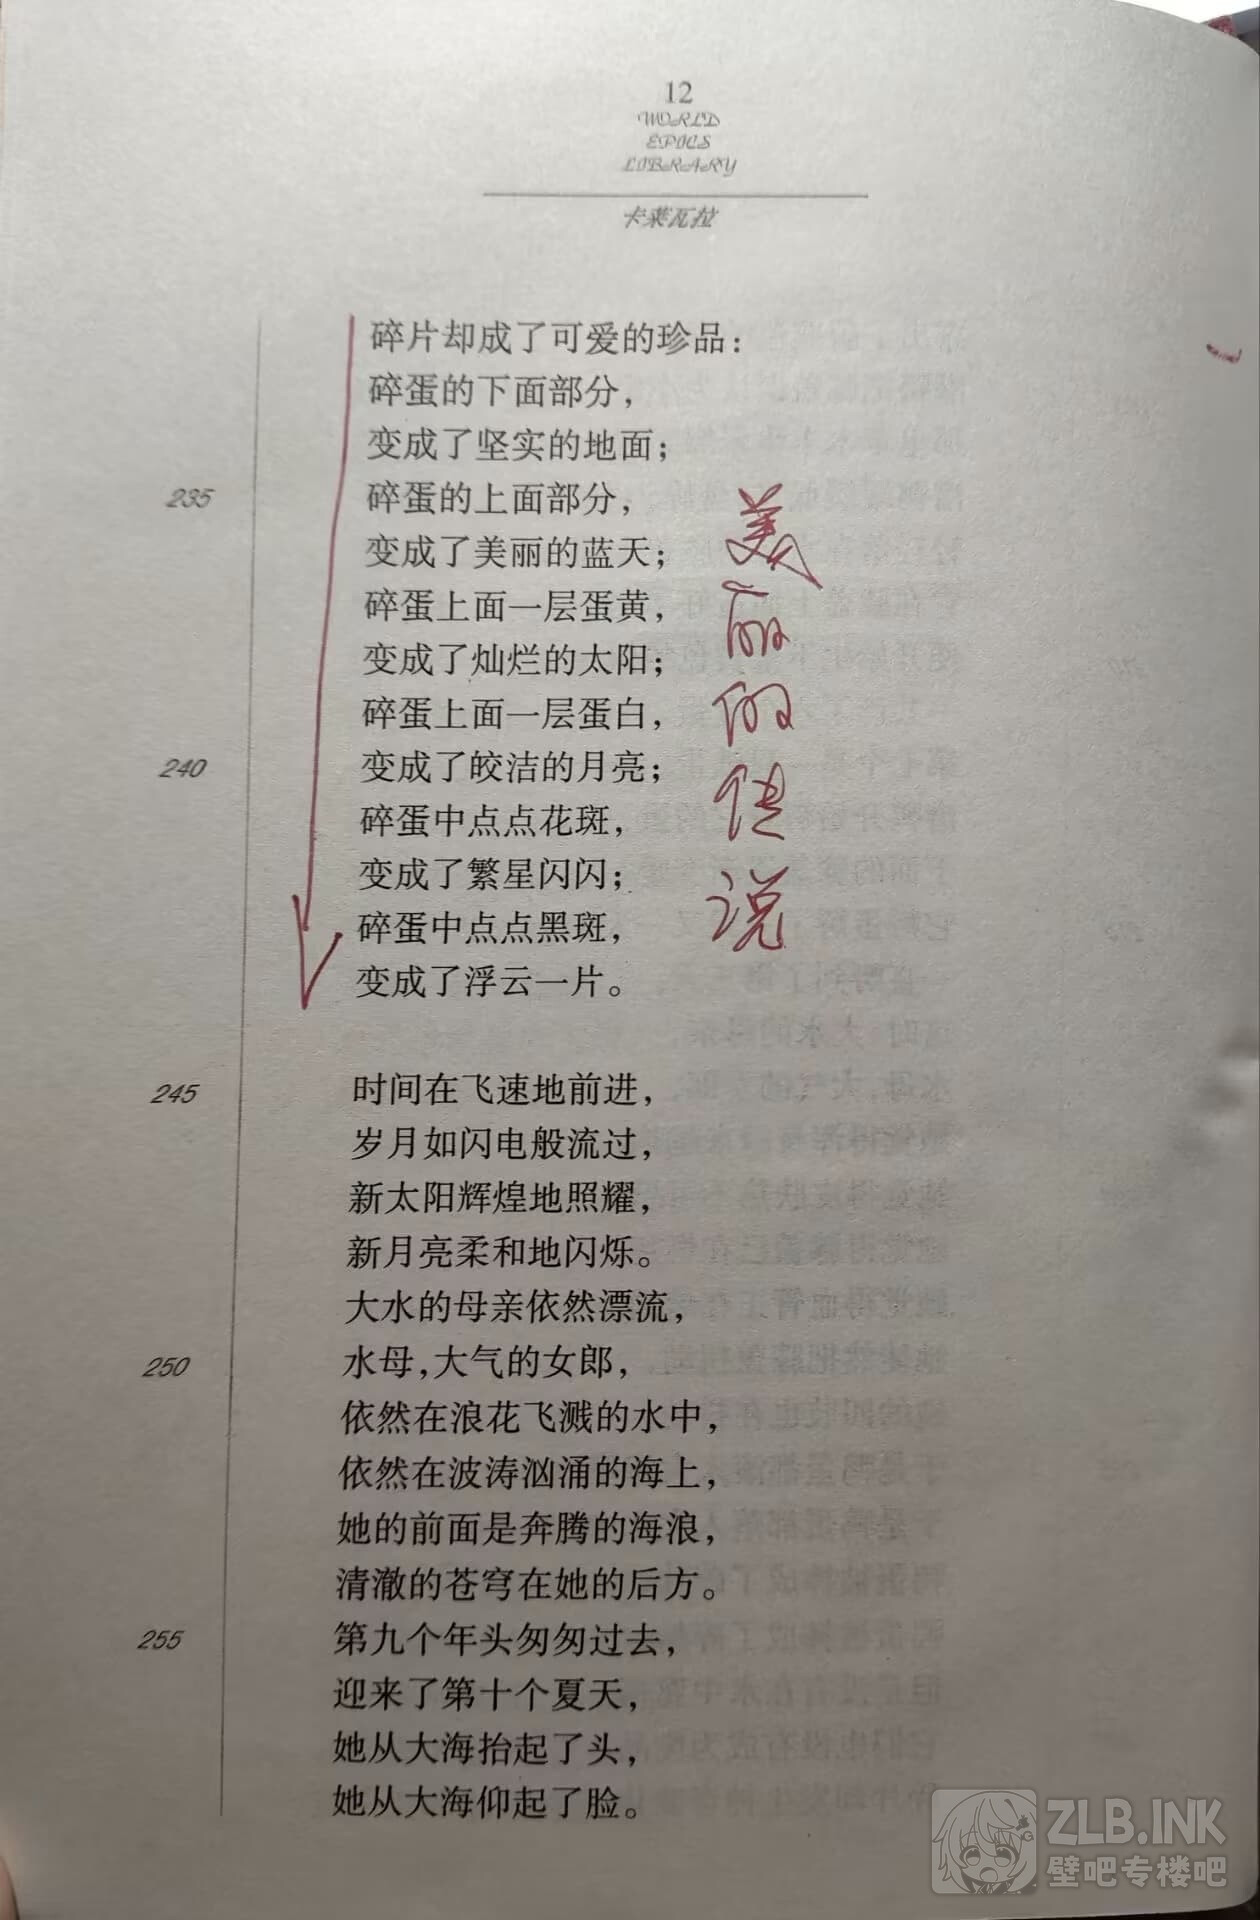 12
WORLD
EPICS
LIBRARY
卡莱瓦拉
碎片却成了可爱的珍品：
碎蛋的下面部分，
变成了坚实的地面；
235 碎蛋的上面部分，
变成了美丽的蓝天；
碎蛋上面一层蛋黄，
变成了灿烂的太阳；
碎蛋上面一层蛋白，
240 变成了皎洁的月亮；
碎蛋中点点花斑，
变成了繁星闪闪；
碎蛋中点点黑斑，
变成了浮云一片。
美丽的传说
245 时间在飞速地前进，
岁月如闪电般流过，
新太阳辉煌地照耀，
新月亮柔和地闪烁。
大水的母亲依然漂流，
250 水母，大气的女郎，
依然在浪花飞溅的水中，
依然在波涛汹涌的海上，
她的前面是奔腾的海浪，
清澈的苍穹在她的后方。
255 第九个年头匆匆过去，
迎来了第十个夏天，
她从大海抬起了头，
她从大海仰起了脸。
ZLB.INK
壁吧专楼吧